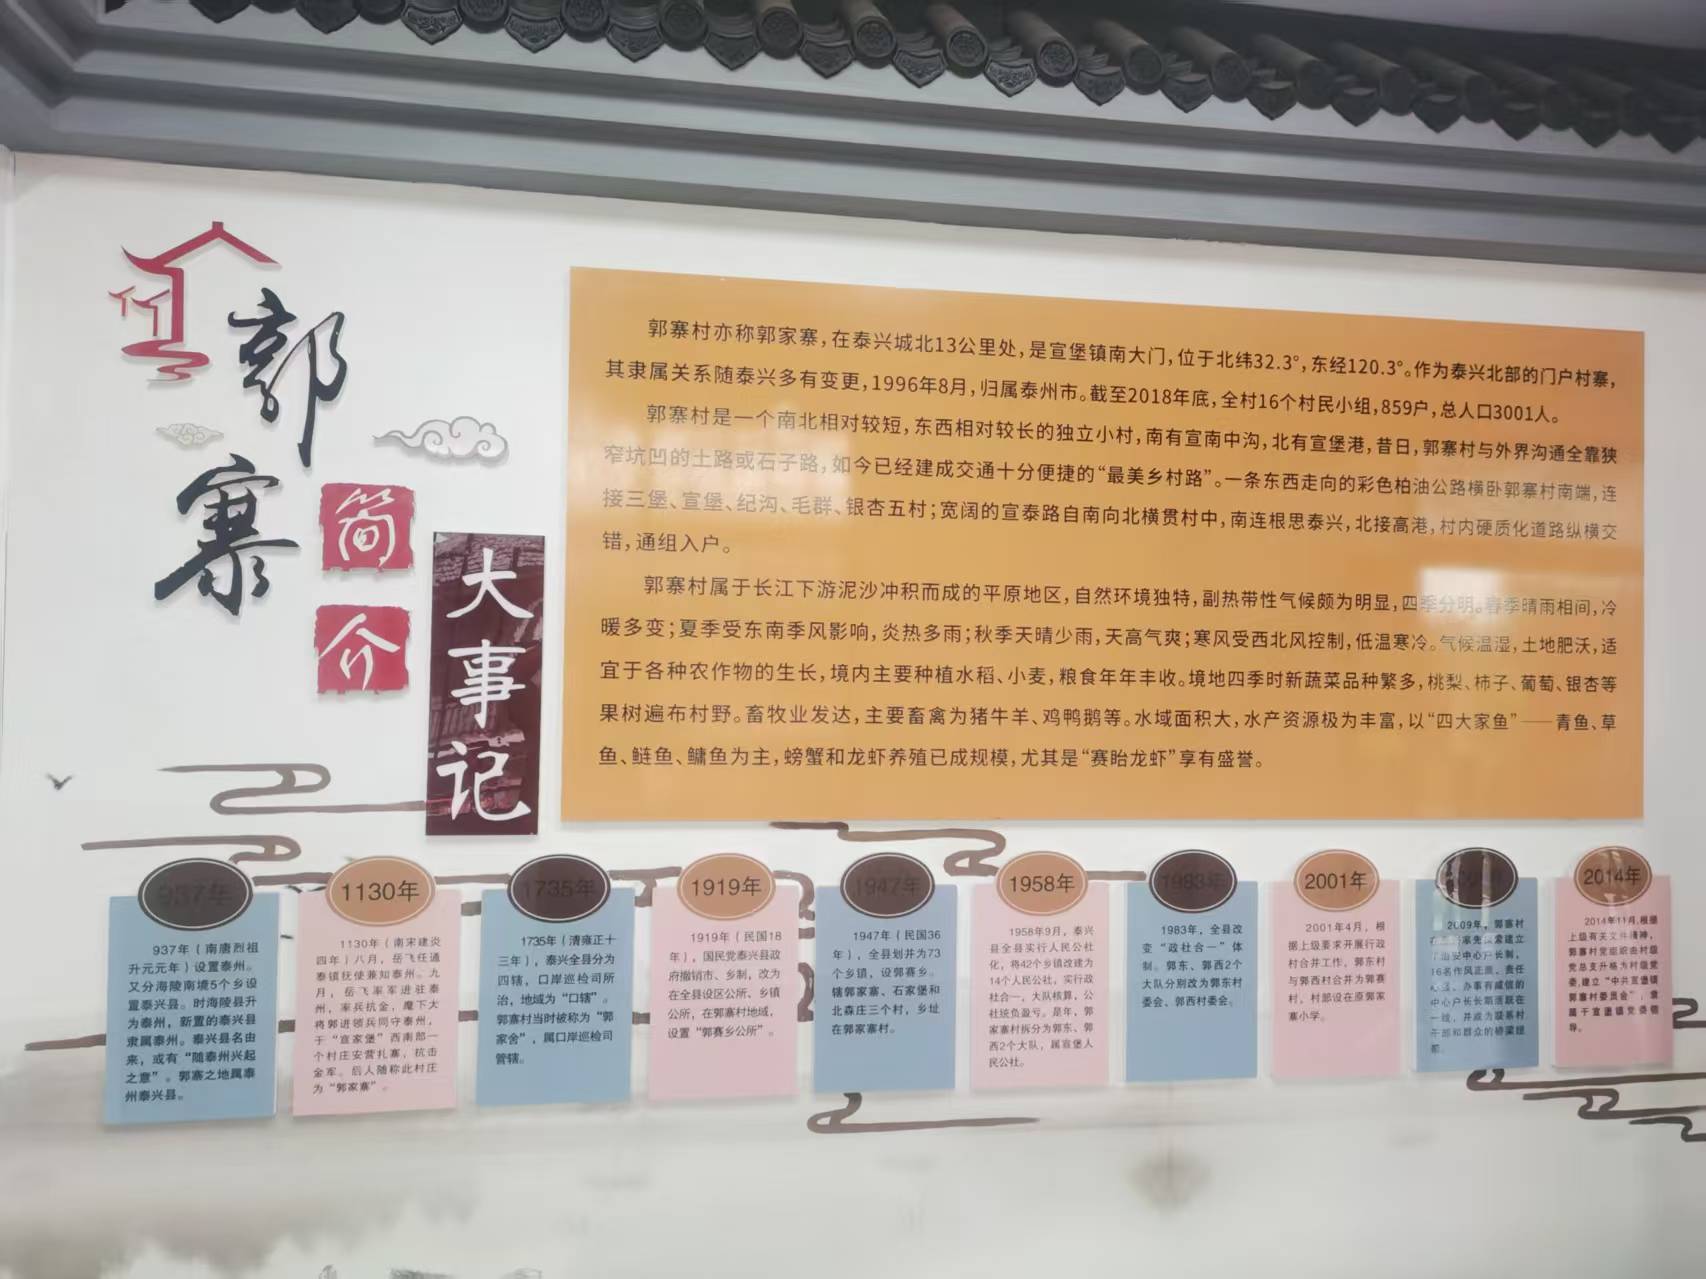 郭寨
简介
大事记
郭寨村亦称郭家寨，在泰兴城北13公里处，是宣堡镇南大门，位于北纬32.3°，东经120.3°。作为泰兴北部的门户村寨，
其隶属关系随泰兴多有变更，1996年8月，归属泰州市。截至2018年底，全村16个村民小组，859户，总人口3001人。
郭寨村是一个南北相对较短，东西相对较长的独立小村，南有宣南中沟，北有宣堡港，昔日，郭寨村与外界沟通全靠狭
窄坑凹的土路或石子路，如今已经建成交通十分便捷的“最美乡村路”。一条东西走向的彩色柏油公路横卧郭寨村南端，连
接三堡、宣堡、纪沟、毛群、银杏五村；宽阔的宣泰路自南向北横贯村中，南连根思泰兴，北接高港，村内硬质化道路纵横交
错，通组入户。
郭寨村属于长江下游泥沙冲积而成的平原地区，自然环境独特，副热带性气候颇为明显，四季分明。春季晴雨相间，冷
暖多变；夏季受东南季风影响，炎热多雨；秋季天晴少雨，天高气爽；寒风受西北风控制，低温寒冷。气候温湿，土地肥沃，适
宜于各种农作物的生长，境内主要种植水稻、小麦，粮食年年丰收。境地四季时新蔬菜品种繁多，桃梨、柿子、葡萄、银杏等
果树遍布村野。畜牧业发达，主要畜禽为猪牛羊、鸡鸭鹅等。水域面积大，水产资源极为丰富，以“四大家鱼”——青鱼、草
鱼、鲢鱼、鳙鱼为主，螃蟹和龙虾养殖已成规模，尤其是“赛眙龙虾”享有盛誉。
937年
937年（南唐烈祖
升元元年）设置泰州。
又分海陵南境5个乡设
置泰兴县。时海陵县升
为泰州，新置的泰兴县
隶属泰州。泰兴县名由
来，或有“随泰州兴起
之意”。郭寨之地属泰
州泰兴县。
1130年
1130年（南宋建炎
四年）八月，岳飞任通
泰镇抚使兼知泰州。九
月，岳飞率军进驻泰
州，率兵抗金，麾下大
将郭进领兵同守泰州，
于“宣家堡”西南郎一
个村庄安营扎寨，抗击
金军。后人随称此村庄
为“郭家寨”。
1735年
1735年（清雍正十
三年），泰兴全县分为
四辖，口岸巡检司所
治，地域为“口辖”。
郭寨村当时被称为“郭
家舍”，属口岸巡检司
管辖。
1919年
1919年（民国18
年），国民党泰兴县政
府撤销市、乡制，改为
在全县设区公所、乡镇
公所，在郭寨村地域，
设置“郭寨乡公所”。
1947年
1947年（民国36
年），全县划并为73
个乡镇，设郭寨乡。
辖郭家寨、石家堡和
北森庄三个村，乡址
在郭家寨村。
1958年
1958年9月，泰兴
县全县实行人民公社
化，将42个乡镇改建为
14个人民公社，实行政
社合一，大队核算，公
社统负盈亏。是年，郭
家寨村拆分为郭东、郭
西2个大队，属宣堡人
民公社。
1983年
1983年，全县改
变“政社合一”体
制。郭东、郭西2个
大队分别改为郭东村
委会、郭西村委会。
2001年
2001年4月，根
据上级要求开展行政
村合并工作，郭东村
与郭西村合并为郭寨
村，村部设在原郭家
寨小学。
2009年，郭寨村
16名作风正派、责任
办事有威信的
中心户长长期活跃在
一线，并成为联系村
干部和群众的桥梁纽
带。
2014年
2014年11月,根据
上级有关文件精神，
郭寨村党组织由村级
党总支升格为村级党
委,建立“中共宣堡镇
郭寨村委员会”，隶
属于宣堡镇党委领
导。